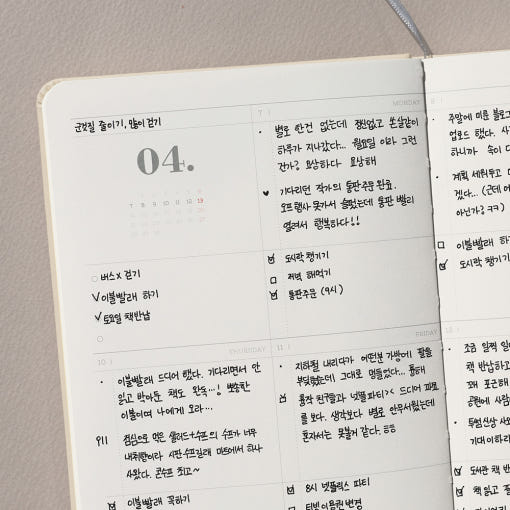 군것질 줄이기, 많이 걷기
04.
7 8 9 10 11 12 13
버스x 걷기
이불빨래 하기
토요일 책반납
7
MONDAY
별로 한건 없는데 정신없고 쏜살같이
하루가 지나갔다... 월요일 이라 그런
건가? 요상하다 요상해
기다리던 작가의 통판주문 완료.
오프행사 못가서 슬펐는데 통판 빨리
열려서 행복하다!!
도시락 챙기기
저녁 해먹기
통판주문 (9시)
8
주말에 미룬 블로그
업로드 했다.
하니까 속이 다
계획 세워두고
겠다... (근데
아닌가? ㅋㅋ)
이불빨래 하
도시락 챙기기
10
THURSDAY
이불빨래 드디어 했다. 기다리면서 안
읽고 받아둔 책도 완독...! 뽀송한
이불이여 나에게 오라...
점심으로 먹은 샐러드+수프의 수프가 너무
내취향이라 시판 수프길래 마트에서 하나
사왔다. 콘수프 최고~
이불빨래 꼭하기
11
FRIDAY
지하철 내리다가 어떤분 가방에 팔을
부딪혔는데 그대로 멍들었다...
동작 친구들과 넷플파티>< 드디어 파묘
를 보다. 생각보다 별로 안무서웠는데
혼자서는 못볼거 같다.
8시 넷플릭스 파티
티빙 이용권 변경
12
조금 일찍 일
책 반납하고
꽤 포근해
공원에 사람
투썸신상
기대이하
도서관 책 반
책 읽고 잘